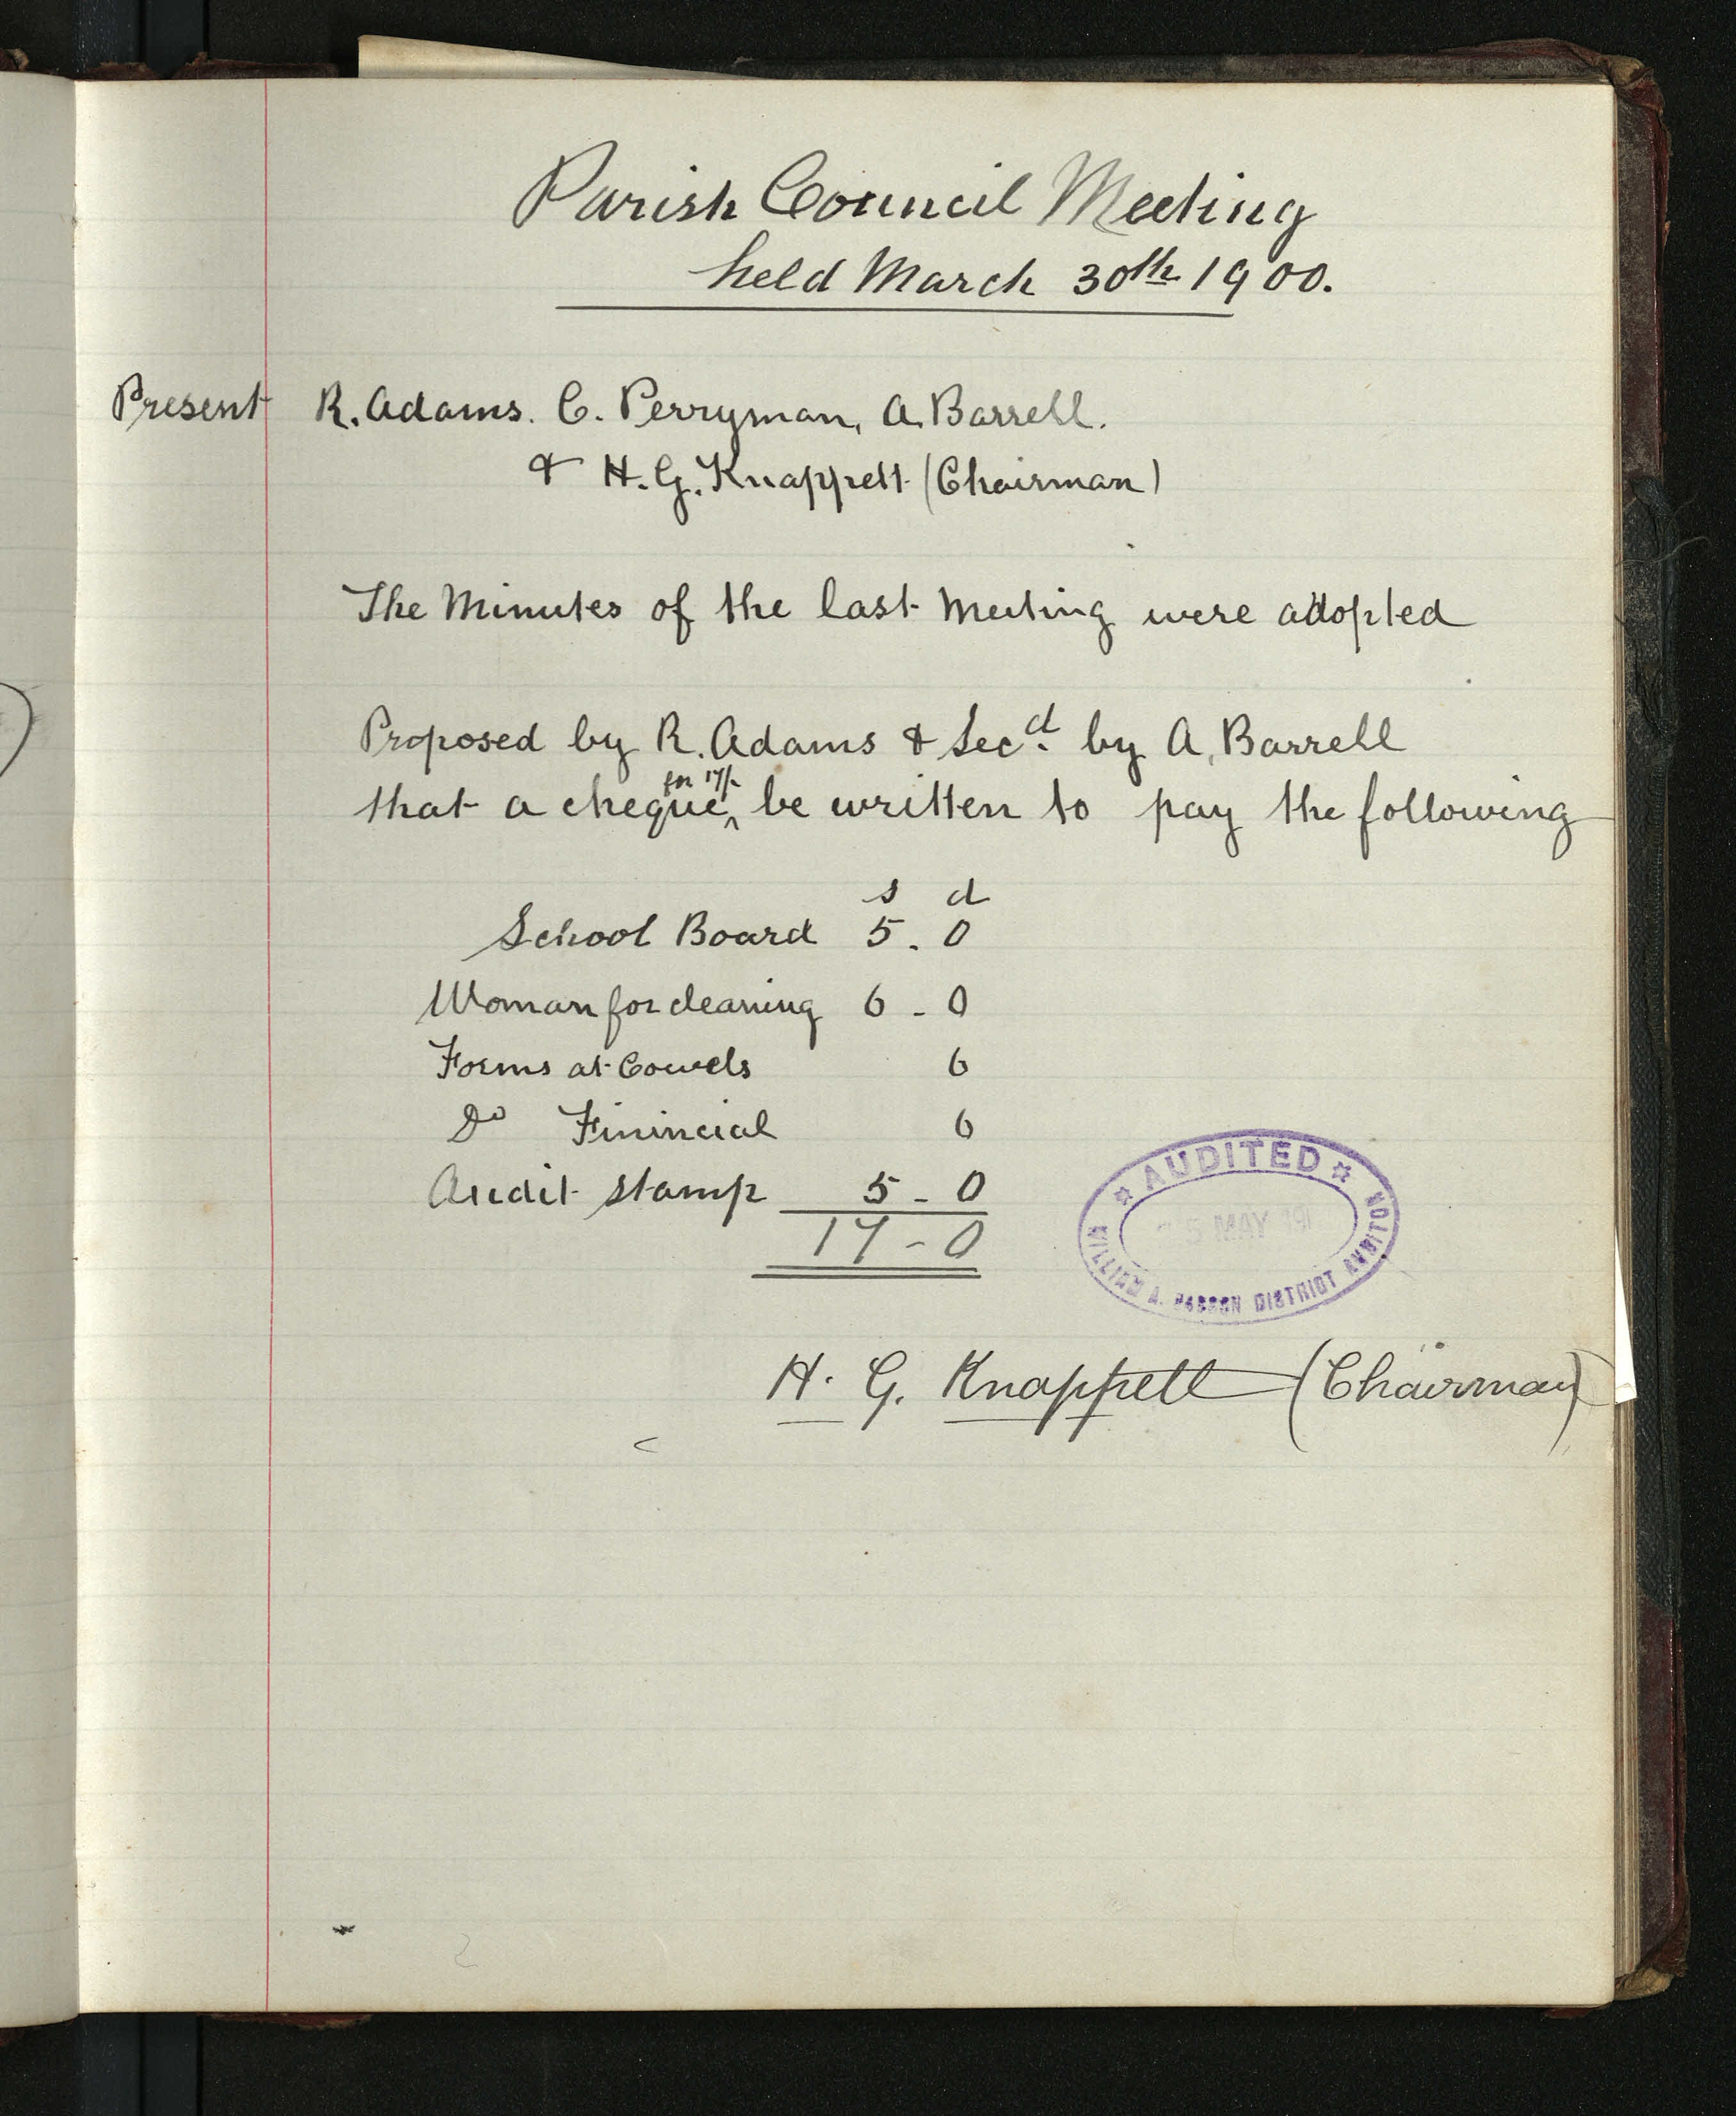 Parish Council Meeting
held March 30th 1900.
Present R. Adams. C. Perryman, A. Barrell.
& H. G. Knappett (Chairman)
The Minutes of the last Meeting were adopted
Proposed by R. Adams & Secd. by A. Barrell
for 17/-
that a cheque ^ be written to pay the following
s d
School Board 5 . 0
Woman for cleaning 6 - 0
Forms at Cowels 6
Do Finincial 6
Audit stamp 5 - 0
17 - 0
AUDITED
5 MAY 19
WILLIAM A. DISTRICT AUDITOR
H. G. Knappett (Chairman)